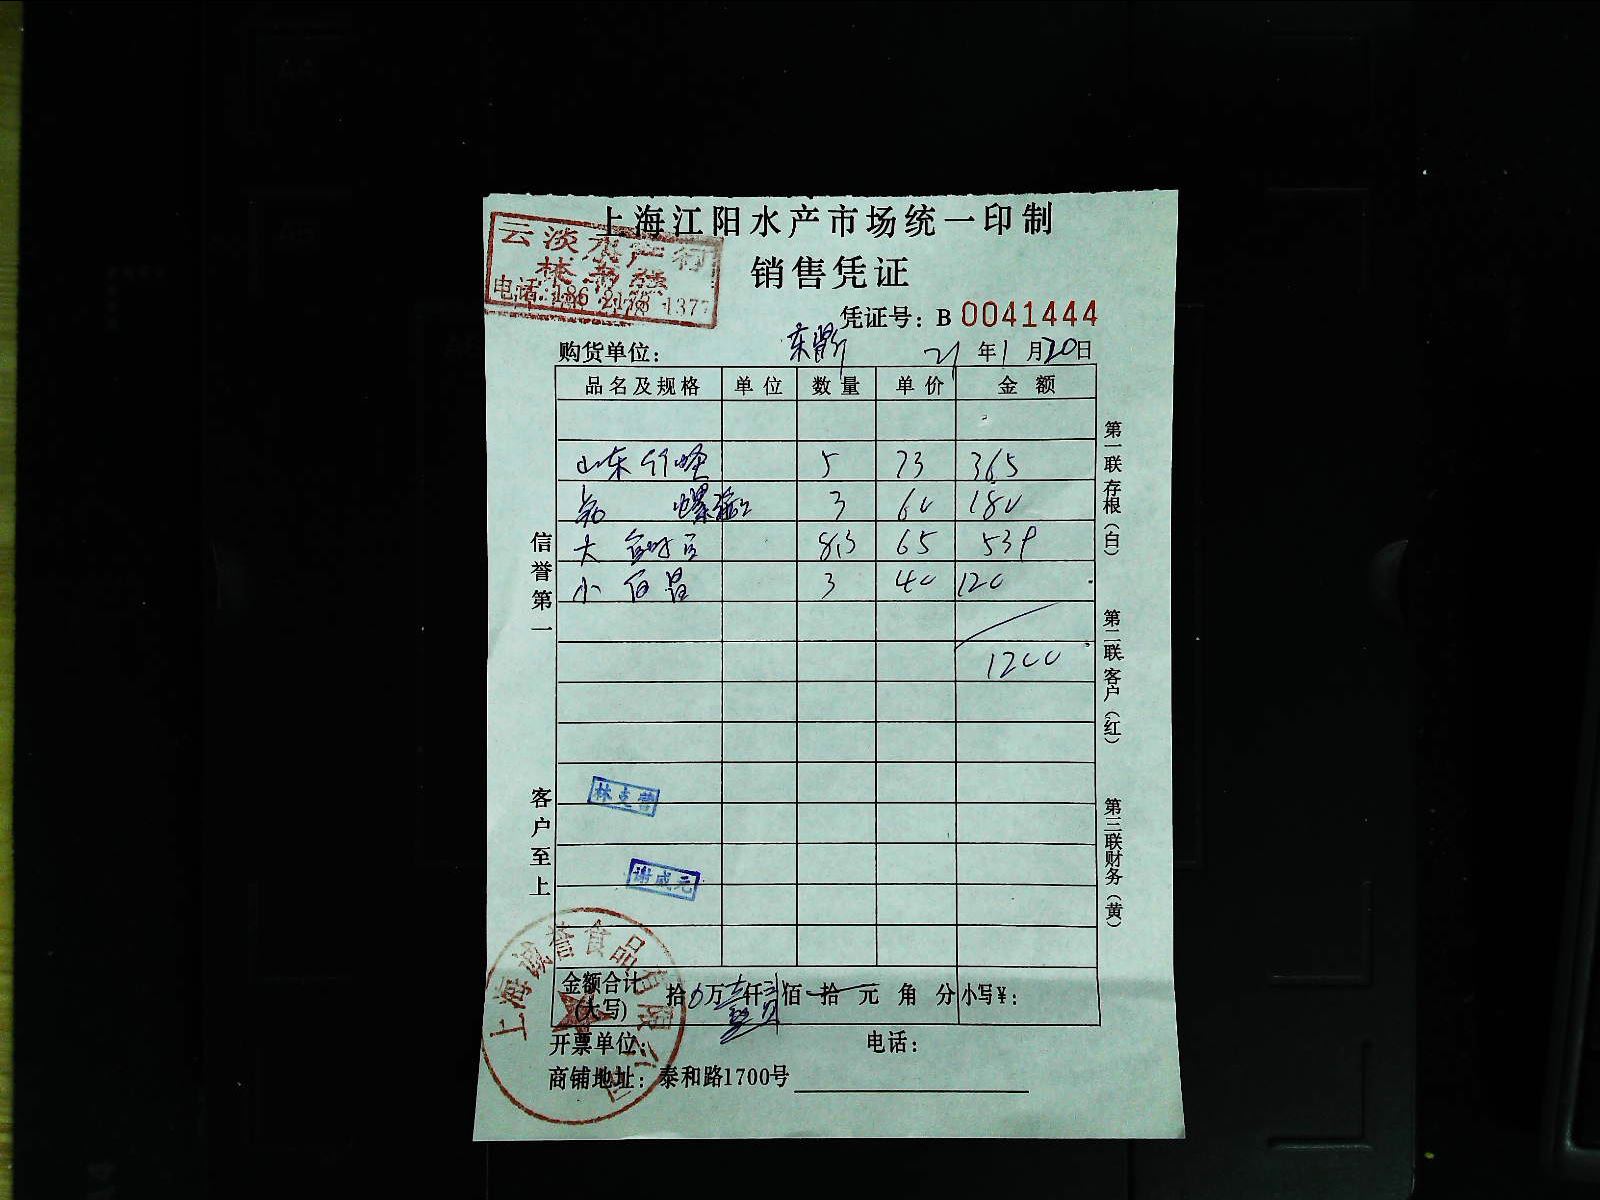 上海江阳水产市场统一印制
云淡水产行
销售凭证
电话:186 2178 1377
凭证号: B 0041444
购货单位: 21年1月20日
品名及规格 单位 数量 单价 金额
山东竹蛏 5 73 365
3 60 180
大 8.3 65 539
小 3 40 120
1200
信誉第一
客户至上
第一联存根(白)
第二联客户(红)
第三联财务(黄)
谢成元
上海诚誉食品有限公司
金额合计(大写) 拾0万壹仟贰佰拾元角分 小写¥:
开票单位: 电话:
商铺地址: 泰和路1700号